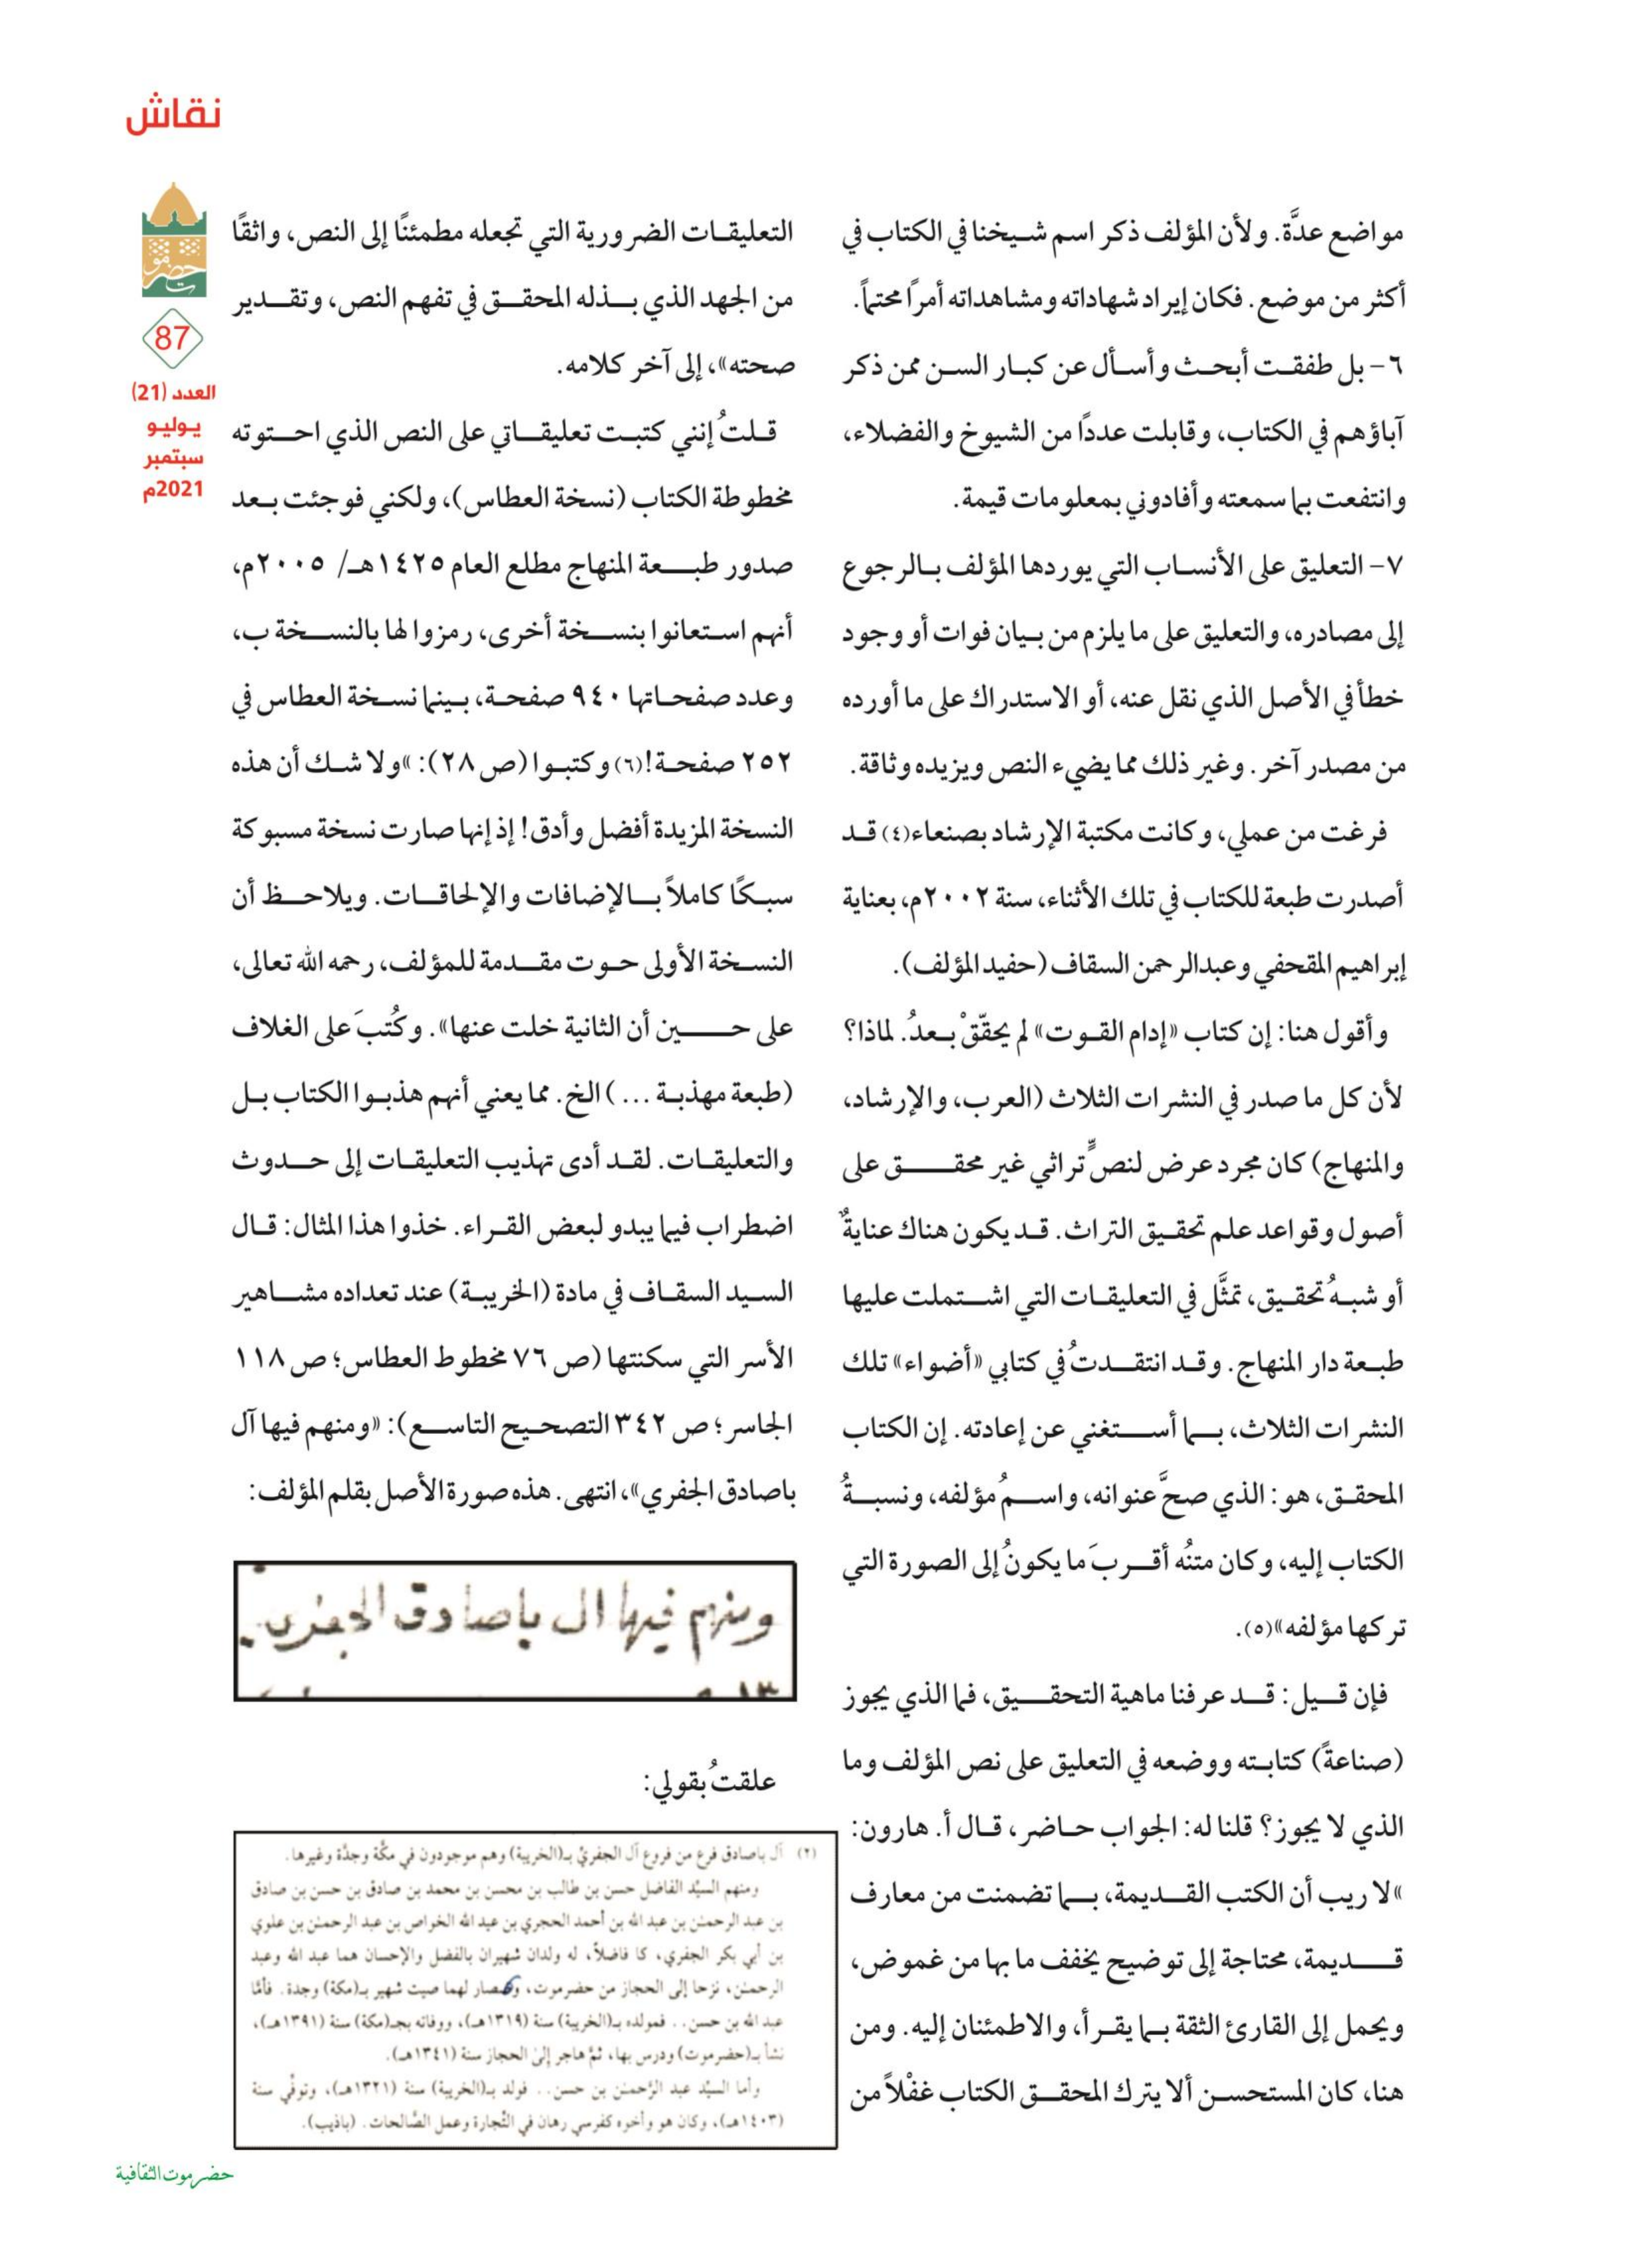 نقاش
حضرموت
87
العدد (21)
يوليو
سبتمبر
2021م
مواضع عدَّة. ولأن المؤلف ذكر اسم شيخنا في الكتاب في
أكثر من موضع. فكان إيراد شهاداته ومشاهداته أمرًا محتماً.
٦- بل طفقت أبحث وأسأل عن كبار السن ممن ذكر
آباؤهم في الكتاب، وقابلت عددًا من الشيوخ والفضلاء،
وانتفعت بما سمعته وأفادوني بمعلومات قيمة.
٧- التعليق على الأنساب التي يوردها المؤلف بالرجوع
إلى مصادره، والتعليق على ما يلزم من بيان فوات أو وجود
خطأ في الأصل الذي نقل عنه، أو الاستدراك على ما أورده
من مصدر آخر. وغير ذلك مما يضيء النص ويزيده وثاقة.
فرغت من عملي، وكانت مكتبة الإرشاد بصنعاء(٤) قد
أصدرت طبعة للكتاب في تلك الأثناء، سنة ٢٠٠٢م، بعناية
إبراهيم المقحفي وعبدالرحمن السقاف (حفيد المؤلف).
وأقول هنا: إن كتاب «إدام القوت» لم يحقّقْ بعدُ. لماذا؟
لأن كل ما صدر في النشرات الثلاث (العرب، والإرشاد،
والمنهاج) كان مجرد عرض لنصٍّ تراثي غير محقق على
أصول وقواعد علم تحقيق التراث. قد يكون هناك عنايةٌ
أو شبهُ تحقيق، تمثَّل في التعليقات التي اشتملت عليها
طبعة دار المنهاج. وقد انتقدتُ في كتابي «أضواء» تلك
النشرات الثلاث، بما أستغني عن إعادته. إن الكتاب
المحقق، هو: الذي صحَّ عنوانه، واسمُ مؤلفه، ونسبةُ
الكتاب إليه، وكان متنُه أقربَ ما يكونُ إلى الصورة التي
تركها مؤلفه»(٥).
فإن قيل: قد عرفنا ماهية التحقيق، فما الذي يجوز
(صناعةً) كتابته ووضعه في التعليق على نص المؤلف وما
الذي لا يجوز؟ قلنا له: الجواب حاضر، قال أ. هارون:
»لا ريب أن الكتب القديمة، بما تضمنت من معارف
قديمة، محتاجة إلى توضيح يخفف ما بها من غموض،
ويحمل إلى القارئ الثقة بما يقرأ، والاطمئنان إليه. ومن
هنا، كان المستحسن ألا يترك المحقق الكتاب غفْلاً من
التعليقات الضرورية التي تجعله مطمئنًا إلى النص، واثقًا
من الجهد الذي بذله المحقق في تفهم النص، وتقدير
صحته»، إلى آخر كلامه.
قلتُ إنني كتبت تعليقاتي على النص الذي احتوته
مخطوطة الكتاب (نسخة العطاس)، ولكني فوجئت بعد
صدور طبعة المنهاج مطلع العام ١٤٢٥هـ/ ٢٠٠٥م،
أنهم استعانوا بنسخة أخرى، رمزوا لها بالنسخة ب،
وعدد صفحاتها ٩٤٠ صفحة، بينما نسخة العطاس في
٢٥٢ صفحة!(٦) وكتبوا (ص ٢٨): »ولا شك أن هذه
النسخة المزيدة أفضل وأدق! إذ إنها صارت نسخة مسبوكة
سبكًا كاملاً بالإضافات والإلحاقات. ويلاحظ أن
النسخة الأولى حوت مقدمة للمؤلف، رحمه الله تعالى،
على حين أن الثانية خلت عنها». وكُتبَ على الغلاف
(طبعة مهذبة ...) الخ. مما يعني أنهم هذبوا الكتاب بل
والتعليقات. لقد أدى تهذيب التعليقات إلى حدوث
اضطراب فيما يبدو لبعض القراء. خذوا هذا المثال: قال
السيد السقاف في مادة (الخريبة) عند تعداده مشاهير
الأسر التي سكنتها (ص ٧٦ مخطوط العطاس؛ ص ١١٨
الجاسر؛ ص ٣٤٢ التصحيح التاسع): «ومنهم فيها آل
باصادق الجفري»، انتهى. هذه صورة الأصل بقلم المؤلف:
ومنهم فيها ال باصادق الجفري.
علقتُ بقولي:
(٢) آل باصادق فرع من فروع آل الجفريّ بـ(الخريبة) وهم موجودون في مكَّة وجدَّة وغيرها.
ومنهم السيّد الفاضل حسن بن طالب بن محسن بن محمد بن صادق بن حسن بن صادق
بن عبد الرحمٰن بن عبد الله بن أحمد الحجري بن عبد الله الخراص بن عبد الرحمٰن بن علوي
بن أبي بكر الجفري، كا فاضلاً، له ولدان شهيران بالفضل والإحسان هما عبد الله وعبد
الرحمٰن، نزحا إلى الحجاز من حضرموت، وصار لهما صيت شهير بـ(مكة) وجدة. فأمَّا
عبد الله بن حسن.. فمولده بـ(الخريبة) سنة (١٣١٩هـ)، ووفاته بجـ(مكة) سنة (١٣٩١هـ)،
نشأ بـ(حضرموت) ودرس بها، ثمّ هاجر إلىٰ الحجاز سنة (١٣٤١هـ).
وأما السيّد عبد الرَّحمٰن بن حسن.. فولد بـ(الخريبة) سنة (١٣٢١هـ)، وتوفّي سنة
(١٤٠٣هـ)، وكان هو وأخوه كفرسي رهان في التِّجارة وعمل الصَّالحات. (باذيب).
حضرموت الثقافية